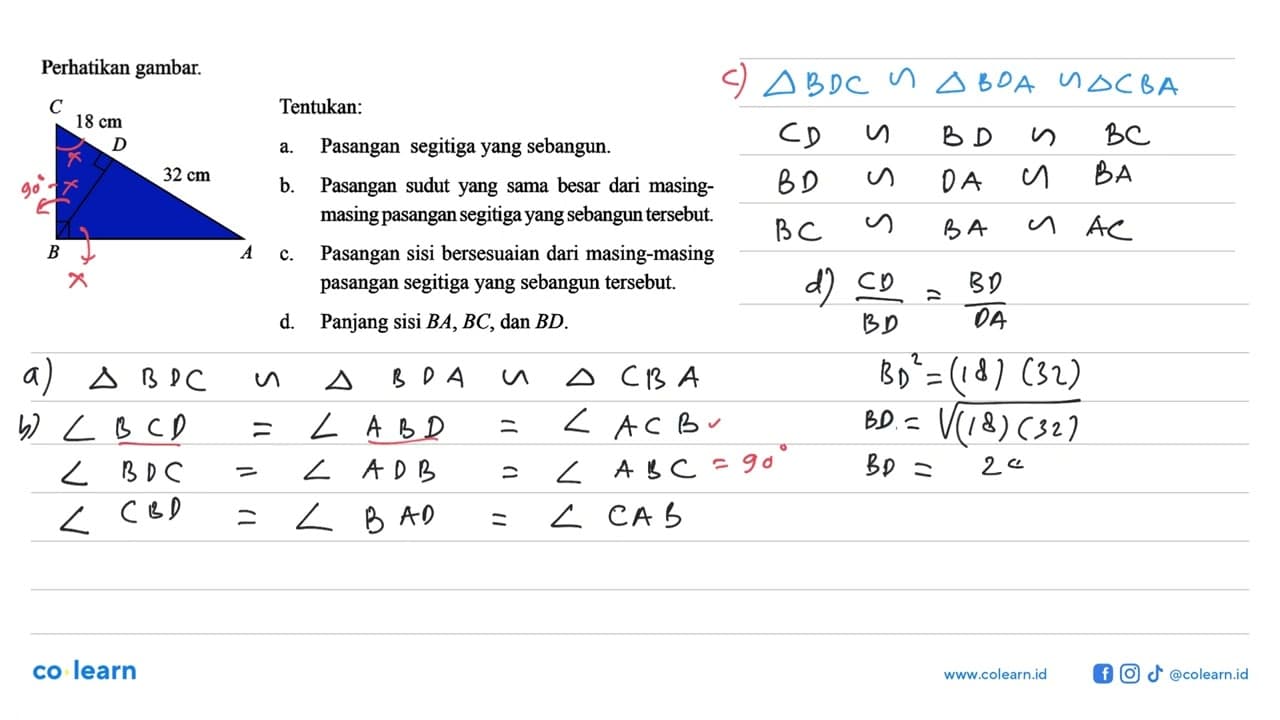 Perhatikan gambar.
C
18 cm
D
32 cm
x
90° - x
B
A
x
Tentukan:
a. Pasangan segitiga yang sebangun.
b. Pasangan sudut yang sama besar dari masing-
masing pasangan segitiga yang sebangun tersebut.
c. Pasangan sisi bersesuaian dari masing-masing
pasangan segitiga yang sebangun tersebut.
d. Panjang sisi BA, BC, dan BD.
a) △ BDC ∽ △ BDA ∽ △ CBA
b) ∠ BCD = ∠ ABD = ∠ ACB ✓
∠ BDC = ∠ ADB = ∠ ABC = 90°
∠ CBD = ∠ BAD = ∠ CAB
c) △ BDC ∽ △ BDA ∽ △ CBA
CD ∽ BD ∽ BC
BD ∽ DA ∽ BA
BC ∽ BA ∽ AC
d) CD/BD = BD/DA
BD² = (18) (32)
BD = √(18)(32)
BD = 2
co learn
www.colearn.id
@colearn.id